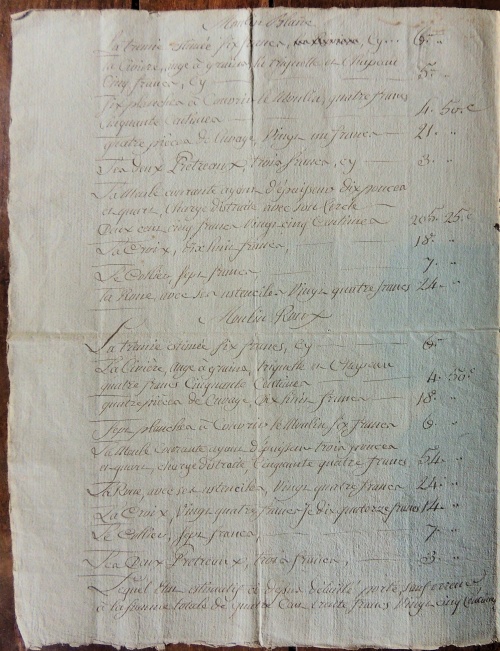 Moulin Blanc
La tremie estimée six francs, cy... 6. "
La Civière, auge à graines, la trejuelle et Chapeau
Cinq francs, cy 5. "
six planches à Couvrir le Moulin, quatre francs
Cinquante Centimes 4. 50c
quatre pièces de Cuvage, Vingt un francs 21. "
Les deux Pretreaux, trois francs, cy 3. "
La Meule courante ayant d'épaisseur dix pouces
et quart, charge distraite avec son Cercle
Deux cent cinq francs Vingt cinq Centimes 205. 25.c
La Croix, dix huit francs, 18. "
Le Collier, sept francs 7. "
La Roue avec ses ustenciles Vingt quatre francs 24. "
Moulin Roux
La tremie estimée six francs, cy 6. "
La Civière, auge à graines, et Chapeau
quatre francs Cinquante Centimes 4. 50c
quatre pièces de Cuvage, dix huit francs 18. "
Sept planches à Couvrir le Moulin six francs 6. "
La Meule Courante ayant d'épaisseur trois pouces
et quart, charge distraite, Cinquante quatre francs 54. "
La Roue, avec ses ustenciles, Vingt quatre francs 24. "
La Croix, Vingt quatre francs Je dis quatorze francs 14. "
Le Collier, sept francs, 7. "
Les Deux Pretreaux, trois francs, 3. "
Lequel état estimatif ci dessus détaillé porte sauf erreur
à la somme totale de quatre Cent trente francs Vingt cinq Centimes